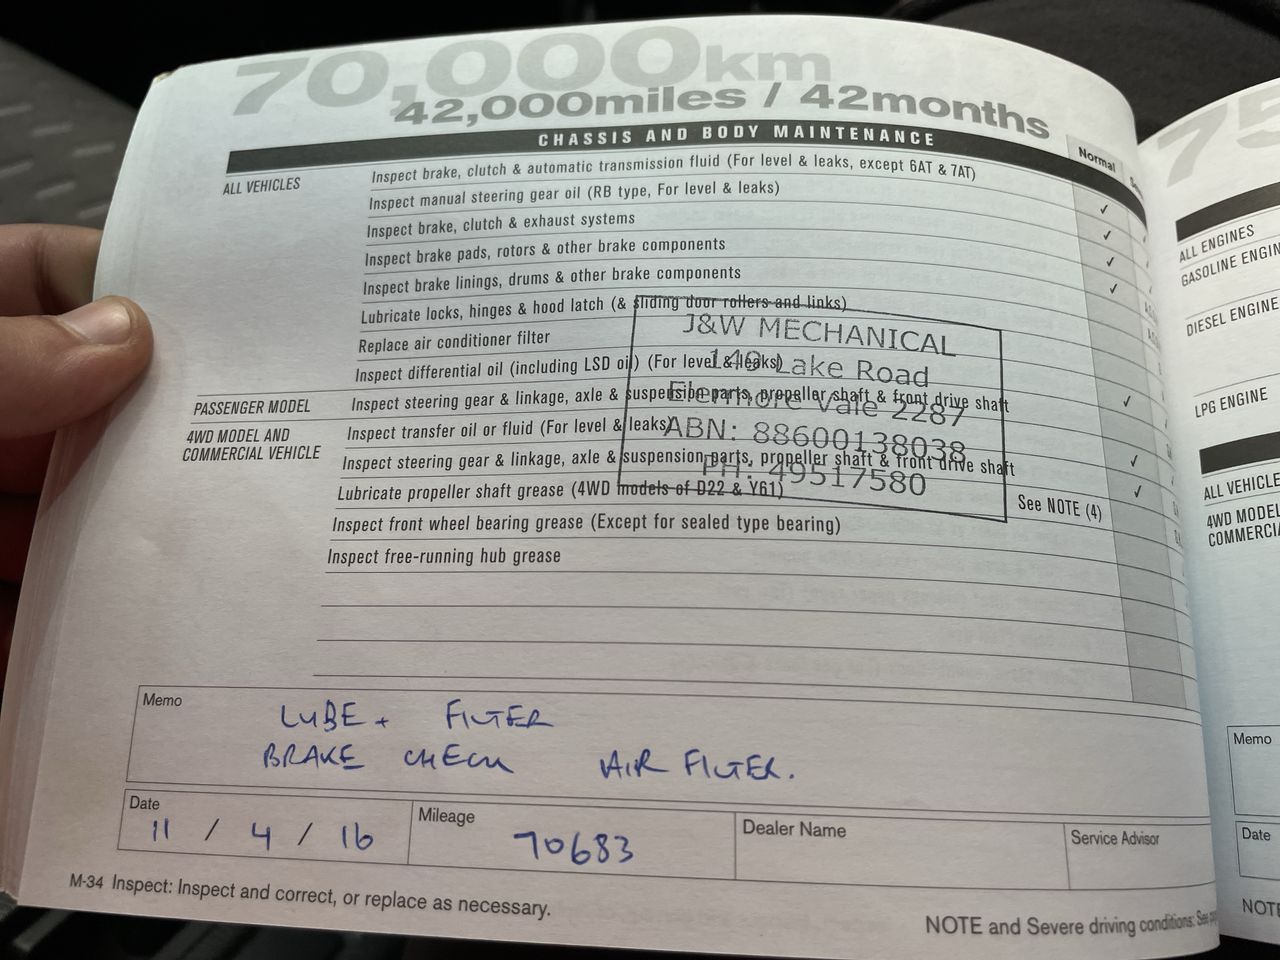 70,000km
42,000miles / 42months
CHASSIS AND BODY MAINTENANCE
Normal
ALL VEHICLES
Inspect brake, clutch & automatic transmission fluid (For level & leaks, except 6AT & 7AT)
Inspect manual steering gear oil (RB type, For level & leaks)
✓
Inspect brake, clutch & exhaust systems
✓
Inspect brake pads, rotors & other brake components
✓
Inspect brake linings, drums & other brake components
✓
Lubricate locks, hinges & hood latch (& sliding door rollers and links)
Replace air conditioner filter
Inspect differential oil (including LSD oil) (For level & leaks)
PASSENGER MODEL
Inspect steering gear & linkage, axle & suspension parts, propeller shaft & front drive shaft
✓
4WD MODEL AND
COMMERCIAL VEHICLE
Inspect transfer oil or fluid (For level & leaks)
✓
Inspect steering gear & linkage, axle & suspension parts, propeller shaft & front drive shaft
✓
Lubricate propeller shaft grease (4WD models of D22 & Y61)
See NOTE (4)
Inspect front wheel bearing grease (Except for sealed type bearing)
Inspect free-running hub grease
J&W MECHANICAL
140 Lake Road
Elermore Vale 2287
ABN: 88600138038
PH: 49517580
Memo
LUBE + FILTER
BRAKE CHECK AIR FILTER.
Date
11 / 4 / 16
Mileage
70683
Dealer Name
Service Advisor
M-34 Inspect: Inspect and correct, or replace as necessary.
NOTE and Severe driving conditions: See
75
ALL ENGINES
GASOLINE ENGIN
DIESEL ENGINE
LPG ENGINE
ALL VEHICLE
4WD MODEL
COMMERCIA
Memo
Date
NOTE